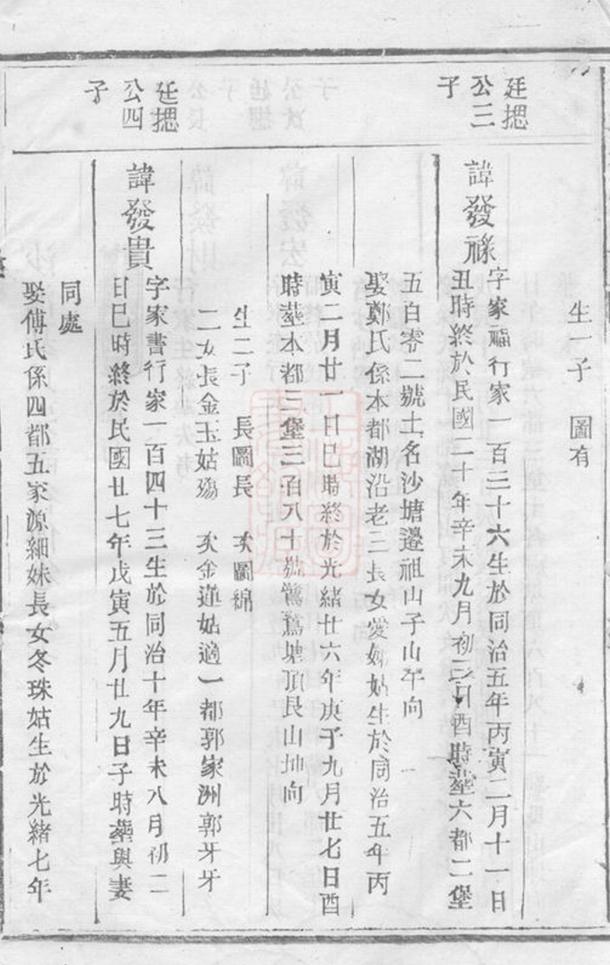 生一子 圖有
廷摁
公三
子
諱發祿 字家福行家一百三十六生於同治五年丙寅二月十一日
丑時終於民國二十年辛未九月初三日酉時塟六都二堡
五百零二號土名沙塘邊祖山子山午向
娶鄭氏係本都湖沿老三長女愛 姑生於同治五年丙
寅二月廿一日巳時終於光緒廿六年庚子九月廿七日酉
時塟本都三堡三百八十號 塘頂艮山坤向
生二子 長圖長 次圖綿
二女長金玉姑殤 次金蓮姑適一都郭家洲郭牙牙
廷摁
公四
子
諱發貴 字家書行家一百四十三生於同治十年辛未八月初二
日巳時終於民國廿七年戊寅五月廿九日子時塟與妻
同處
娶傅氏係四都五家源細妹長女冬珠姑生於光緒七年